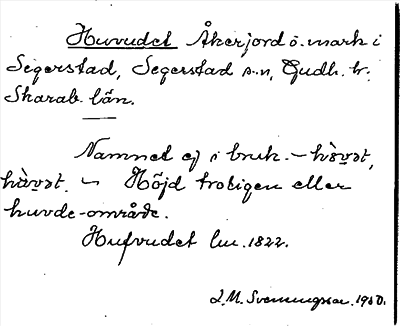 Huvudet Åkerjord o. mark i
Segerstad, Segerstad s:n, Gudh. hr.
Skarab. län.
Namnet ej i bruk. – hòvət,
hàvət. – Höjd troligen eller
huvde-område.
Hufvudet lm. 1822.
J.M. Svenningsson. 1950.